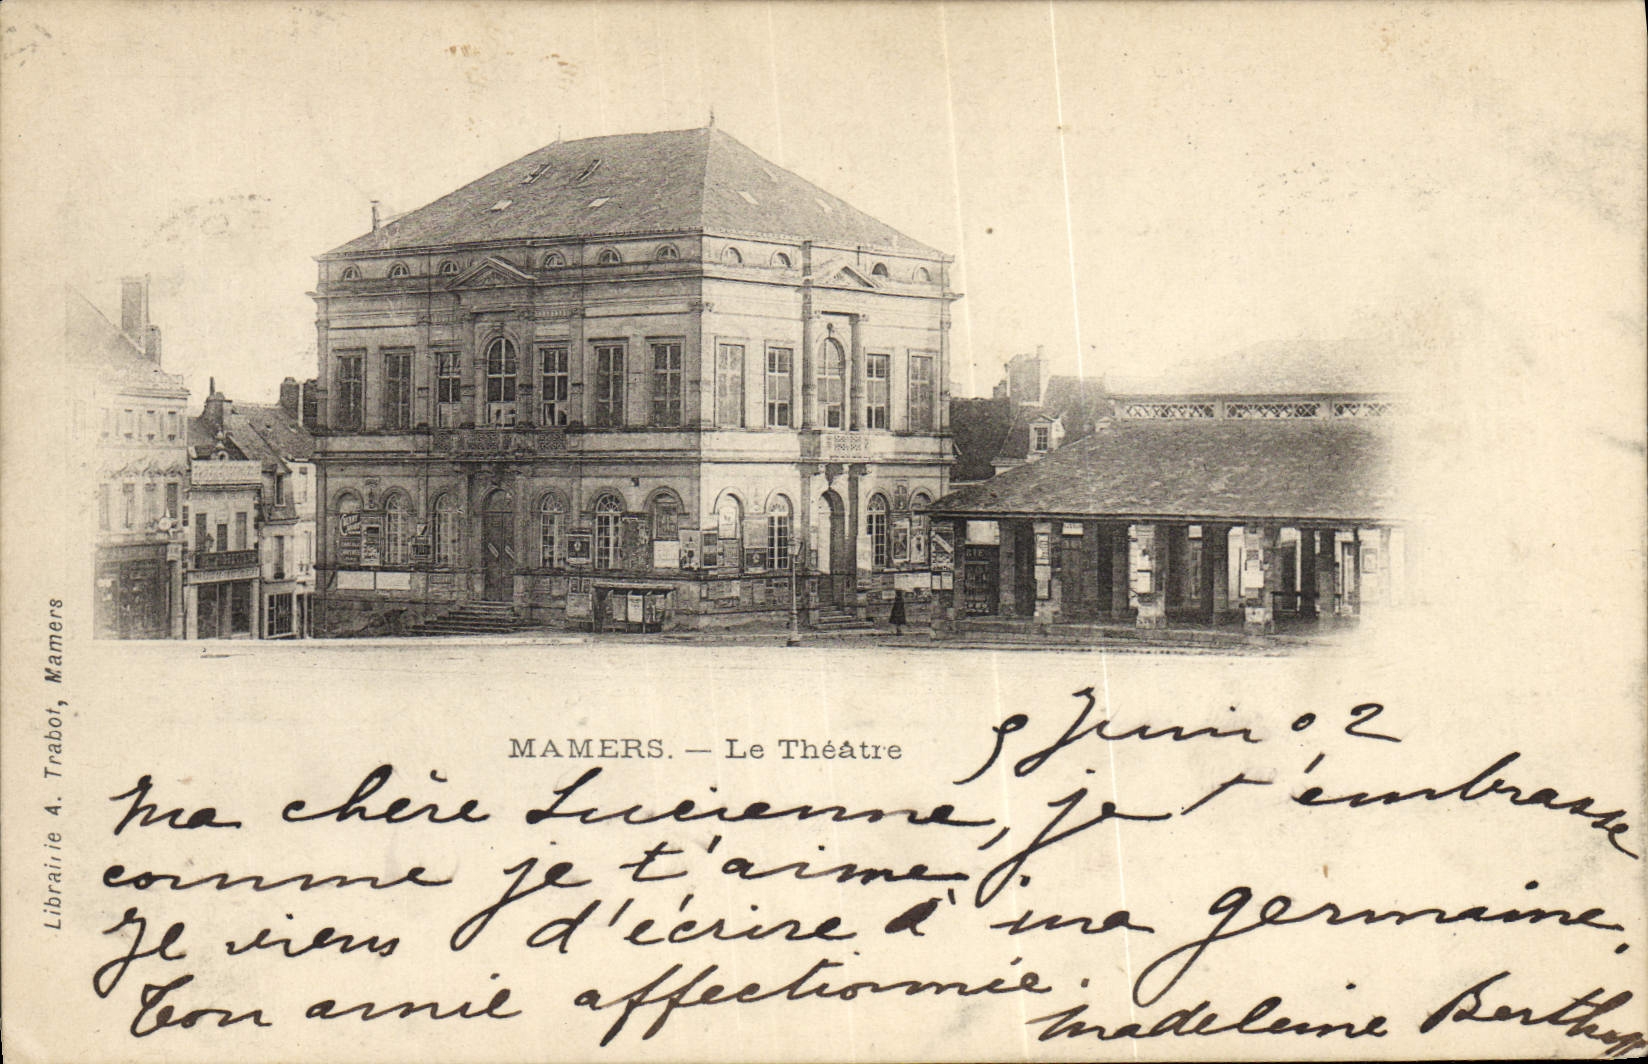 MAMERS. — Le Théâtre
9 Juin 02
Ma chère Lucienne, je t'embrasse
comme je t'aime.
Je viens d'écrire à ma germaine.
Ton amie affectionnée.
Madeleine
Librairie A. Trabot, Mamers